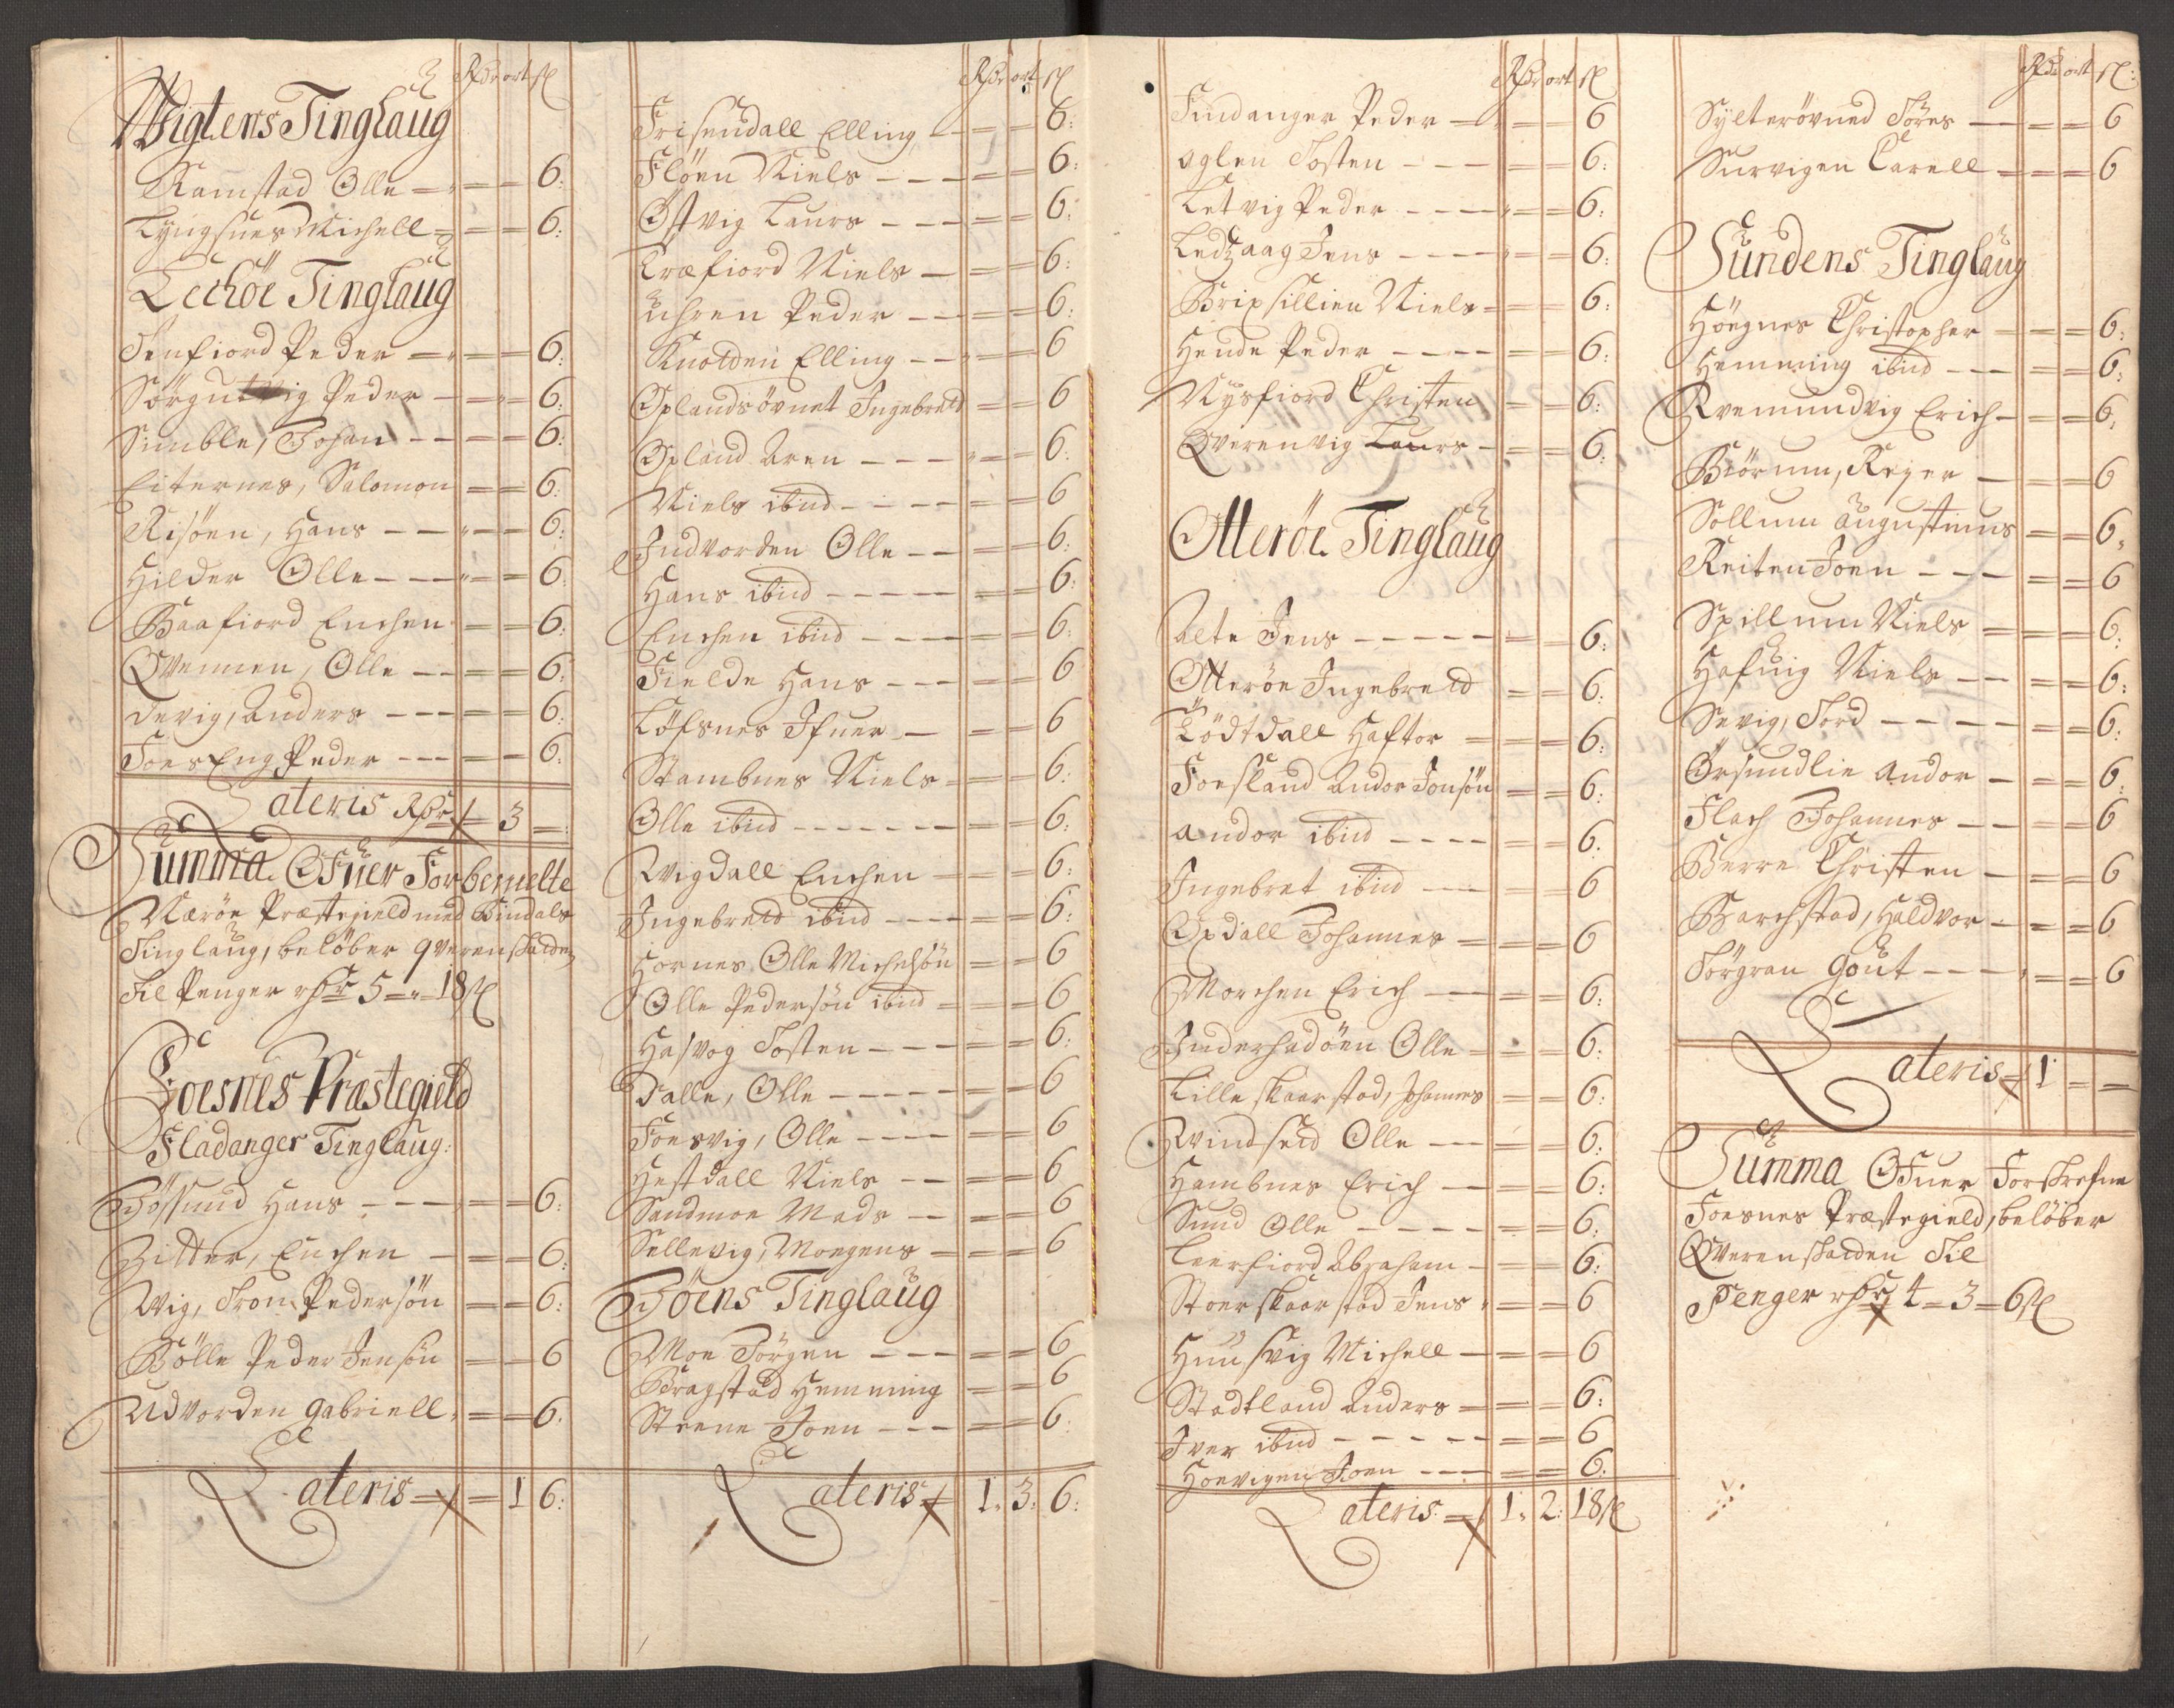 Rdr ort sk
Wigtens Tinglaug
Ramstad Olle – – – 6:
Lyngsnes Michell – – – 6:
Lechöe Tinglaug
Tenfiord Peder – – – 6:
Sörgutvig Peder – – – 6:
Simble, Johan – – – 6:
Eiternes, Salomon – – 6:
Risöen, Hans – – – 6:
Hilder Olle – – – 6:
Baafiord Enchen – – 6:
Qvennen, Olle – – – 6:
Devig, Anders – – – 6:
Foeseng Peder – – – 6:
Lateris Rdr – 3 –
Summa Ofuer Forbemelte
Næröe Præstegield med Bindals
Tinglaug, belöber qvernskatden
Til Penger rdr 5 – „ – 18 sk
Foesnes Præstegield
Fladanger Tinglaug:
Bössund Hans – – – 6:
Zitter, Enchen – – – 6:
Wig, Tron Pedersön – – 6:
Bölle Peder Jensön – – 6
Udvorden Gabriell – – 6:
Lateris – – 1 6:
Rdr ort sk
Frisendall Elling – – – 6:
Flöen Niels – – – 6:
Östvig Laurs – – – 6:
Træfiord Niels – – – 6:
Uhren Peder – – – 6:
Knotden Elling – – – 6
Oplandsövnet Ingebretd – – 6
Opland Aren – – – 6:
Niels ibid – – – 6
Indvorden Olle – – – 6:
Hans ibid – – – 6:
Enchen ibid – – – 6:
Fielde Hans – – – 6
Löfsnes Ifuer – – – 6
Stambnes Niels – – – 6:
Olle ibid – – – 6:
Wigdall Enchen – – – 6:
Ingebretd ibid – – – 6:
Hornes Olle Michelsön – – 6
Olle Pedersön ibid – – – 6
Hasvog Tosten – – – 6:
Dalle, Olle – – – 6
Foesvig, Olle – – – 6
Hestdall Niels – – – 6
Sandmoe Mads – – – 6
Sellevig, Moegens – – – 6
Böens Tinglaug
Moe Jörgen – – – 6
Bragstad Hemming – – 6
Steene Joen – – – 6:
Lateris – 1. 3: 6:
Rdr ort sk
Findanger Peder – – – 6
Oglen Tosten – – – 6:
Letvig Peder – – – 6:
Ledzaag Jens – – – 6:
Brixsillien Niels – – – 6:
Hende Peder – – – 6:
Nysfiord Christen – – 6:
Qverenvig Laurs – – – 6:
Otteröe Tinglaug
Alte Jens – – – 6:
Otteröe Ingebretd – – 6:
Lödtdall Haftor – – – 6:
Foesland Andor Jonsön – – 6:
Andor ibid – – – 6:
Ingebret ibid – – – 6
Opdall Johannes – – – 6
Morchen Erich – – – 6:
Inderhadöen Olle – – – 6:
Lille skaarstad, Johannes – – 6:
Windseid Olle – – – 6:
Hambnes Erich – – – 6:
Sund Olle – – – 6:
Leerfiord Abraham – – – 6:
Stoerskaarstad Jens – – 6
Huusvig Michell – – – 6
Stadtland Anders – – – 6:
Iver ibid – – – 6
Hoevigen Joen – – – 6:
Lateris. – 1. 2. 18 sk
Rdr ort sk:
Sylterövned Töres – – – 6
Survigen Carell – – – 6
Sundens Tinglaug
Höegnes Christopher – – – 6:
Hemming ibid – – – 6:
Rvemundvig Erich – – – 6:
Biörum, Reyer – – – 6
Sollum Augustinus – – 6.
Reiten Joen – – – 6
Spillum Niels – – – 6:
Hafuig Niels – – – 6:
Sevig, Tord – – – 6:
Örsundlie Andor – – – 6:
Flach Johannes – – – 6
Berre Christen – – – 6
Barchstad, Haldvor – – – 6
Törgran Gout – – – 6
Lateris – 1 – –
Summa Ofuer Forskrefne
Foesnes Præstegield, belöber
Qverenskatden Til
Penger rdr 4 – 3 – 6 sk